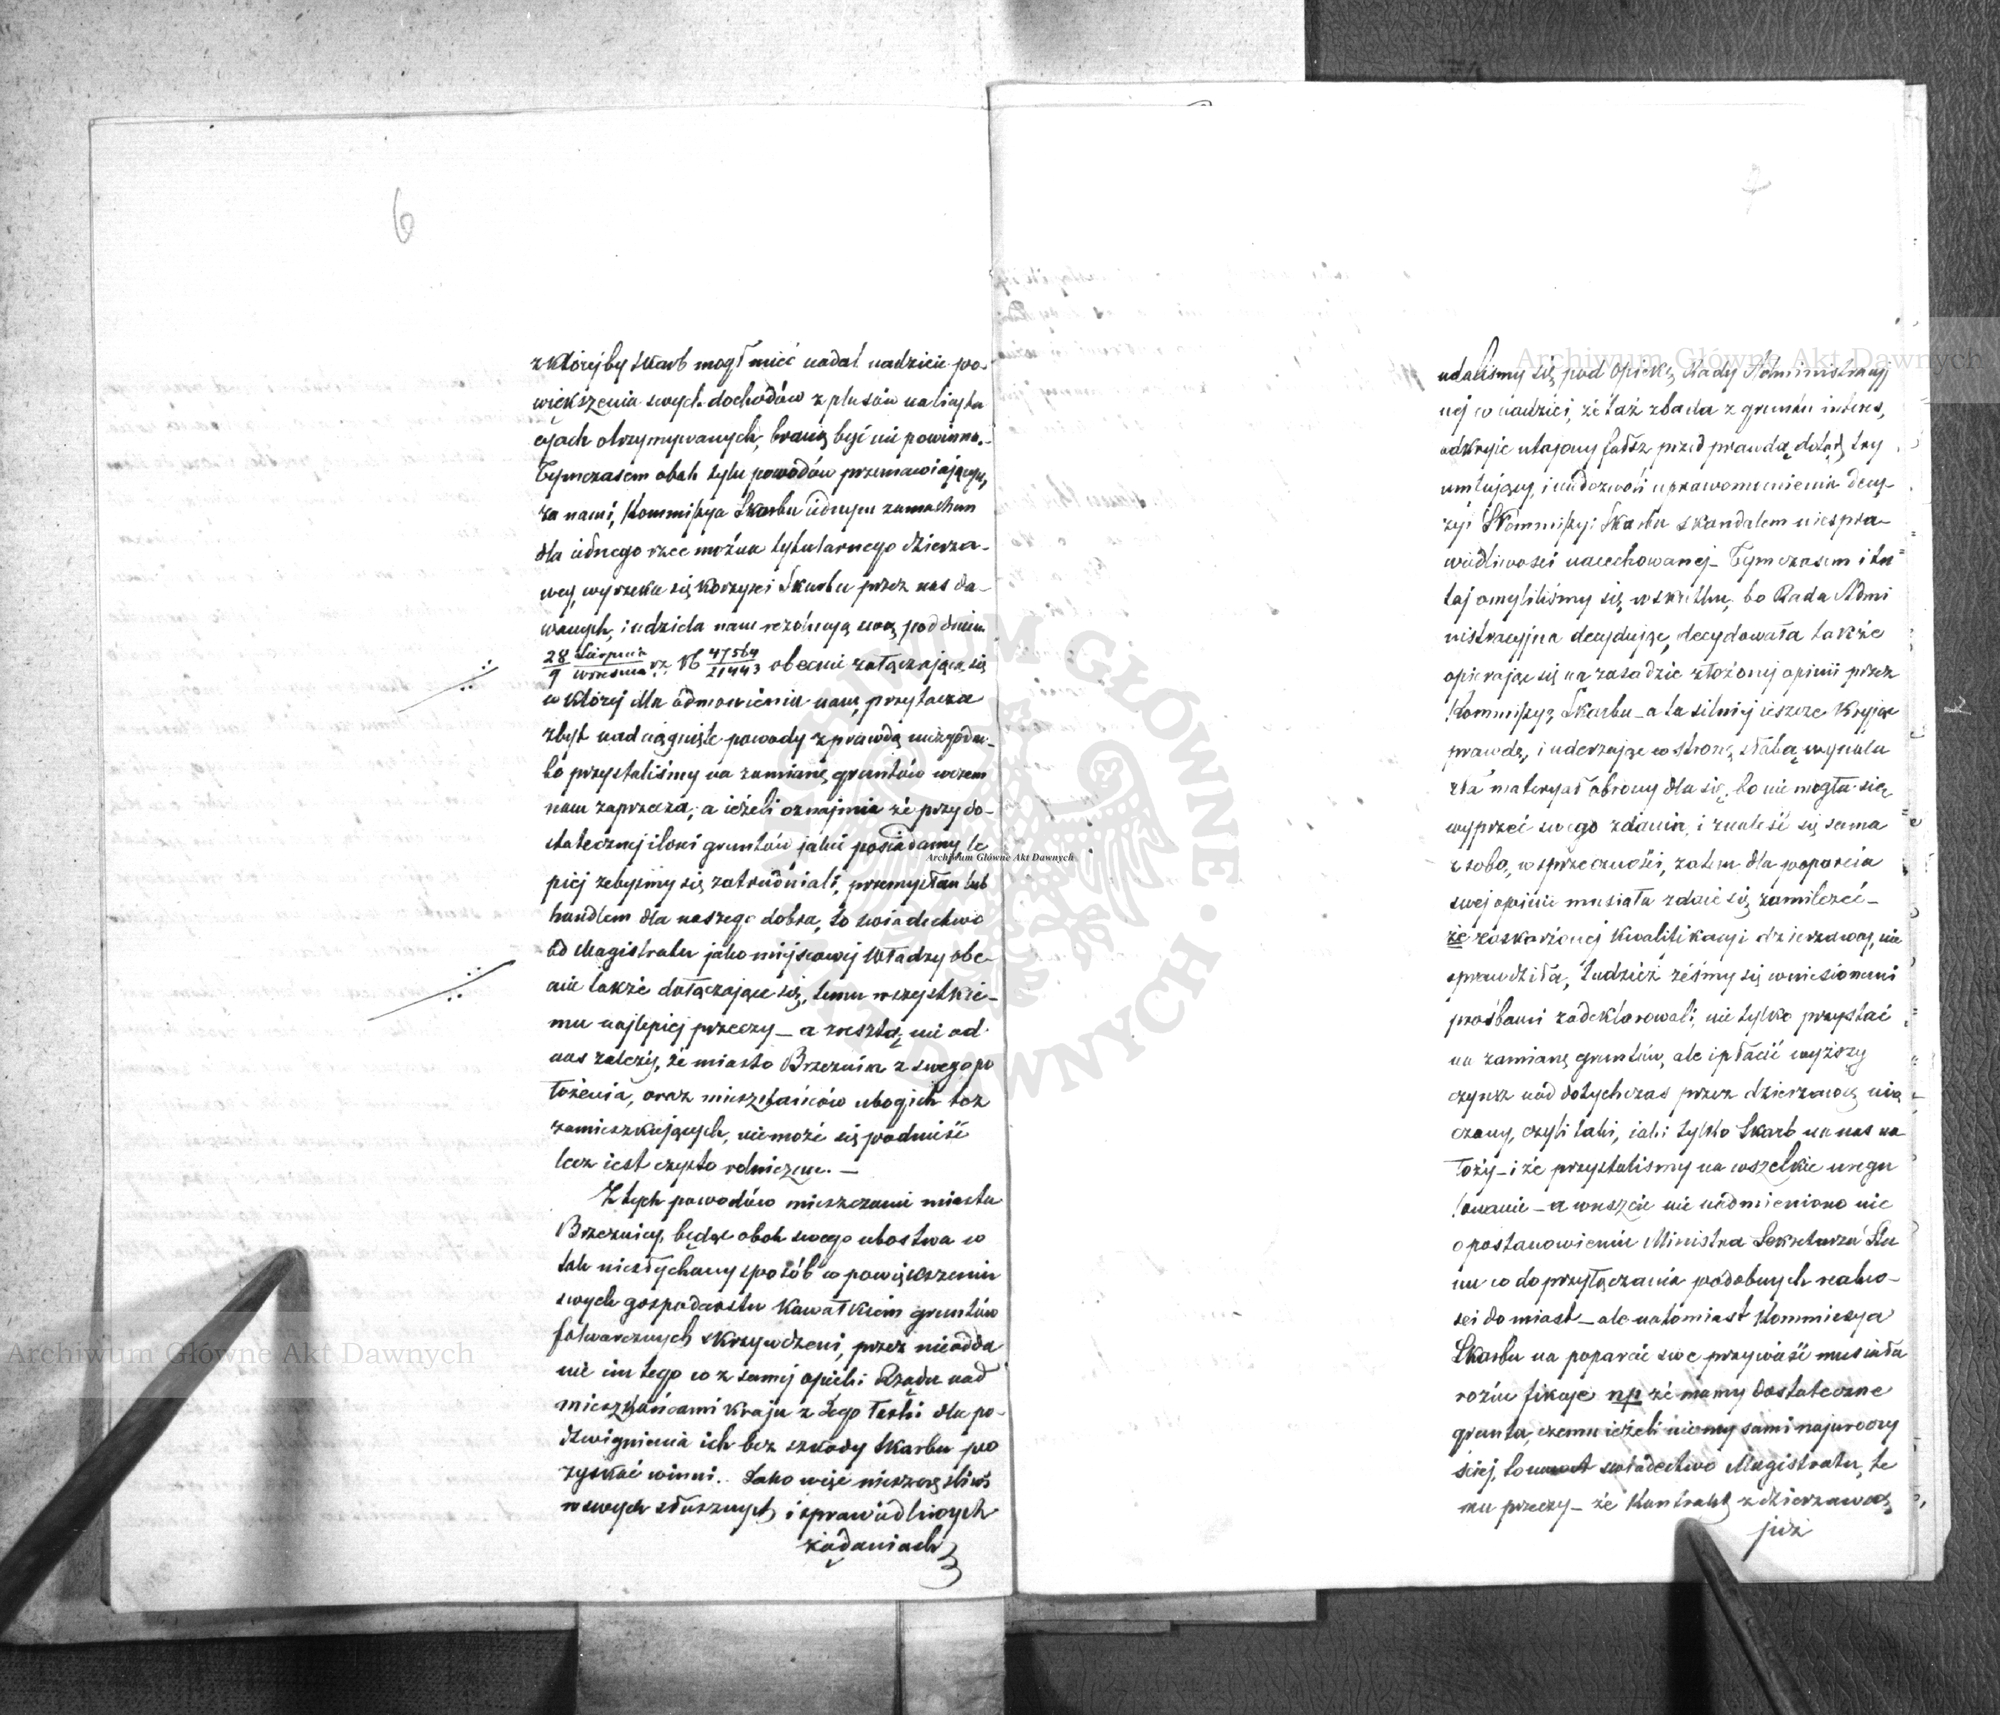 6
z którejby Skarb mógł mieć nadal nadzieie po-
większenia swych dochodów z plusów na licyta
cyach otrzymywanych, braną być nie powinna.
Tymczasem obok tylu powodów przemawiających
za nami, Kommissya Skarbu iednym zamachem
dla iednego rzec można tytularnego dzierża-
wcy, wyrzekła się korzyści Skarbu przez nas da-
wanych, i udziela nam rezolucyą swą pod dniem
28 Sierpnia / 9 Września r.z. N 47564/21443 obecnie załączającą się
w której dla odmówienia nam, przytacza
zbyt nadciągnięte powody z prawdą niezgodne
bo przystaliśmy na zamianę gruntów wczem
nam zaprzecza; a ieżeli oznajmia że przy do-
statecznej ilości gruntów jakie posiadamy le
piej żebyśmy się zatrudniali, przemysłem lub
handlem dla naszego dobra, to świadectwo
od Magistratu jako miejscowej Władzy obe-
cnie także dołączające się, temu wszystkie-
mu najlepiej przeczy – a zresztą, nie od
nas zależy, że miasto Brzeźnica z swego po
łożenia, oraz mieszkańców ubogich toż
zamieszkujących, niemoże się podnieść
lecz iest czysto rolniczem. –
Z tych powodów mieszczanie miasta
Brzeźnicy, będąc obok swego ubóstwa w
tak niesłychany sposób w powiększeniu
swych gospodarstw kawałkiem gruntów
folwarcznych skrzywdzeni, przez nieodda
nie im tego co z samej opieki Rządu nad
mieszkańcami kraju z Jego łaski dla po-
dźwignienia ich bez szkody Skarbu po
zyskać winni. Jako więc nieszczęśliwi
w swych słusznych i sprawiedliwych
żądaniach
7
udaliśmy się pod opiekę Rady Administracyj
nej w nadziei, że taż zbada z gruntu interes,
odkryie utajony fałsz przed prawdą dotąd try
umfujący, i niedozwoli uprawomocnienia decy-
zyi Kommissyi Skarbu skandalem niespra-
wiedliwości nacechowanej – Tymczasem i tu
taj omyliliśmy się w skutku, bo Rada Admi
nistracyjna decydując, decydowała także
opierając się na zasadzie złożonej opinii przez
Kommissyą Skarbu – a ta silniej ieszcze kryjąc
prawdę, i uderzając w stronę słabą wynala
zła materyał obrony dla się, bo nie mogła się
wyprzeć swego zdania i znaleść się sama
z sobą w sprzeczności, zatem dla poparcia
swej opinii musiała zdaie się zamilczeć –
że zaskarżonej kwalifikacyi dzierżawcy, nie
sprawdziła, tudzież żeśmy się wniesionemi
prośbami zadeklarowali, nie tylko przystać
na zamianę gruntów, ale i płacić wyższy
czynsz nad dotychczas przez dzierżawcę uisz
czany, czyli taki, iaki tylko Skarb na nas na
łoży – i że przystaliśmy na wszelkie uregu
lowanie – a wreszcie nie nadmieniono nic
o postanowieniu Ministra Sekretarza Sta
nu co do przyłączania podobnych realno-
ści do miast – ale natomiast Kommissya
Skarbu na poparcie swe przywieść musiała
rożne fikcye np że mamy dostateczne
grunta, czemu ieżeli nie my sami najuroczy
ściej, to świadectwo Magistratu, te
mu przeczy – że Kontrakt z dzierżawcą
już
Archiwum Główne Akt Dawnych
Archiwum Główne Akt Dawnych
Archiwum Główne Akt Dawnych
ARCHIWUM GŁÓWNE AKT DAWNYCH